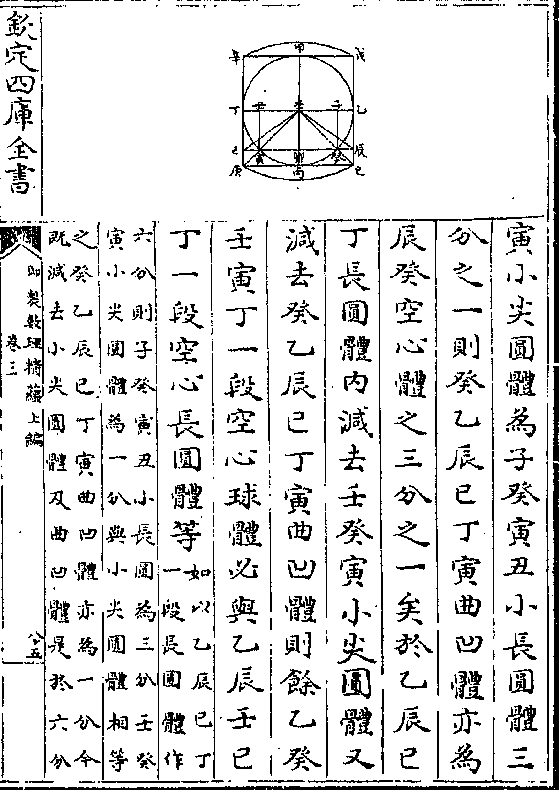 辛 甲 戊
丁 丑 壬 子 乙
己 寅 卯 癸 辰
庚 丙 巳
寅小尖圓體為子癸寅丑小長圓體三
分之一則癸乙辰巳丁寅曲凹體亦為
辰癸空心體之三分之一矣於乙辰巳
丁長圓體內減去壬癸寅小尖圓體又
減去癸乙辰巳丁寅曲凹體則餘乙癸
壬寅丁一段空心球體必與乙辰壬巳
丁一段空心長圓體等
如以乙辰巳丁
一段長圓體作
六分則子癸寅丑小長圓為三分壬癸
寅小尖圓體為一分與小尖圓體相等
之癸乙辰巳丁寅曲凹體亦為一分今
既減去小尖圓體及曲凹體是於六分
欽定四庫全書
御製數理精蘊上編
卷三
八五